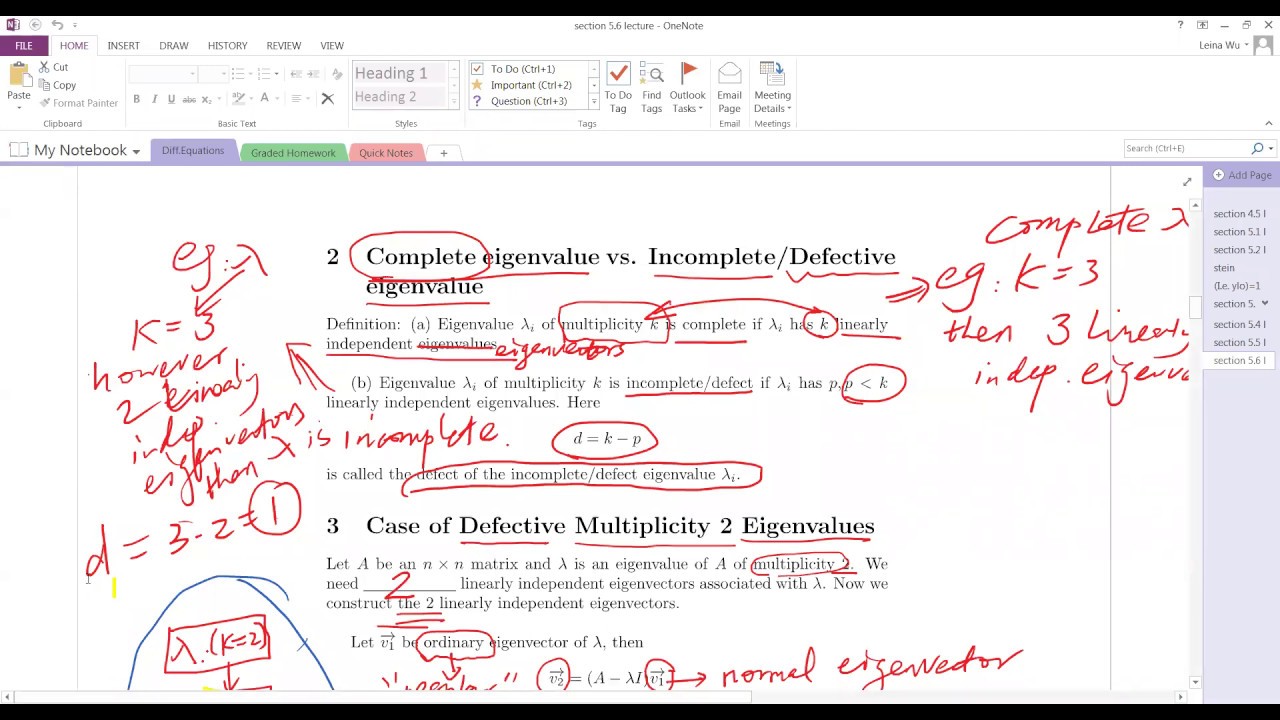 section 5.6 lecture - OneNote
FILE HOME INSERT DRAW HISTORY REVIEW VIEW
Leina Wu
Paste
Cut
Copy
Format Painter
Clipboard
B I U abc x₂ A
Basic Text
Heading 1
Heading 2
Styles
To Do (Ctrl+1)
Important (Ctrl+2)
Question (Ctrl+3)
To Do Tag
Find Tags
Outlook Tasks
Tags
Email Page
Email
Meeting Details
Meetings
My Notebook
Diff.Equations
Graded Homework
Quick Notes
Search (Ctrl+E)
Add Page
section 4.5 l
section 5.1 l
section 5.2 l
stein
(I.e. ylo)=1
section 5.
section 5.4 l
section 5.5 l
section 5.6 l
complete λ
eg: λ
2 Complete eigenvalue vs. Incomplete/Defective
eigenvalue
⇒ eg: K = 3
K = 3
Definition: (a) Eigenvalue λᵢ of multiplicity k is complete if λᵢ has k linearly
independent eigenvalues. eigenvectors
then 3 linearly
indep. eigenv
however
2 linearly
indep.
eigenvectors
then λ is incomplete.
(b) Eigenvalue λᵢ of multiplicity k is incomplete/defect if λᵢ has p, p < k
linearly independent eigenvalues. Here
d = k − p
is called the defect of the incomplete/defect eigenvalue λᵢ.
d = 3 - 2 = 1
3 Case of Defective Multiplicity 2 Eigenvalues
Let A be an n × n matrix and λ is an eigenvalue of A of multiplicity 2. We
need ____2____ linearly independent eigenvectors associated with λ. Now we
construct the 2 linearly independent eigenvectors.
λ. (K=2)
Let v₁ be ordinary eigenvector of λ, then
v₂ = (A − λI) v₁ → normal eigenvector